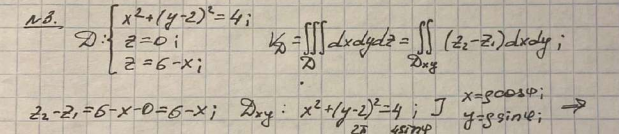 №3. D: { x²+(y-2)²=4; z=0; z=6-x; V_D=∭_D dxdydz=∬_Dxy (z₂-z₁)dxdy;
z₂-z₁=6-x-0=6-x; Dxy: x²+(y-2)²=4; ] x=ρcosφ; y=ρsinφ; ⇒
2π 4sinφ